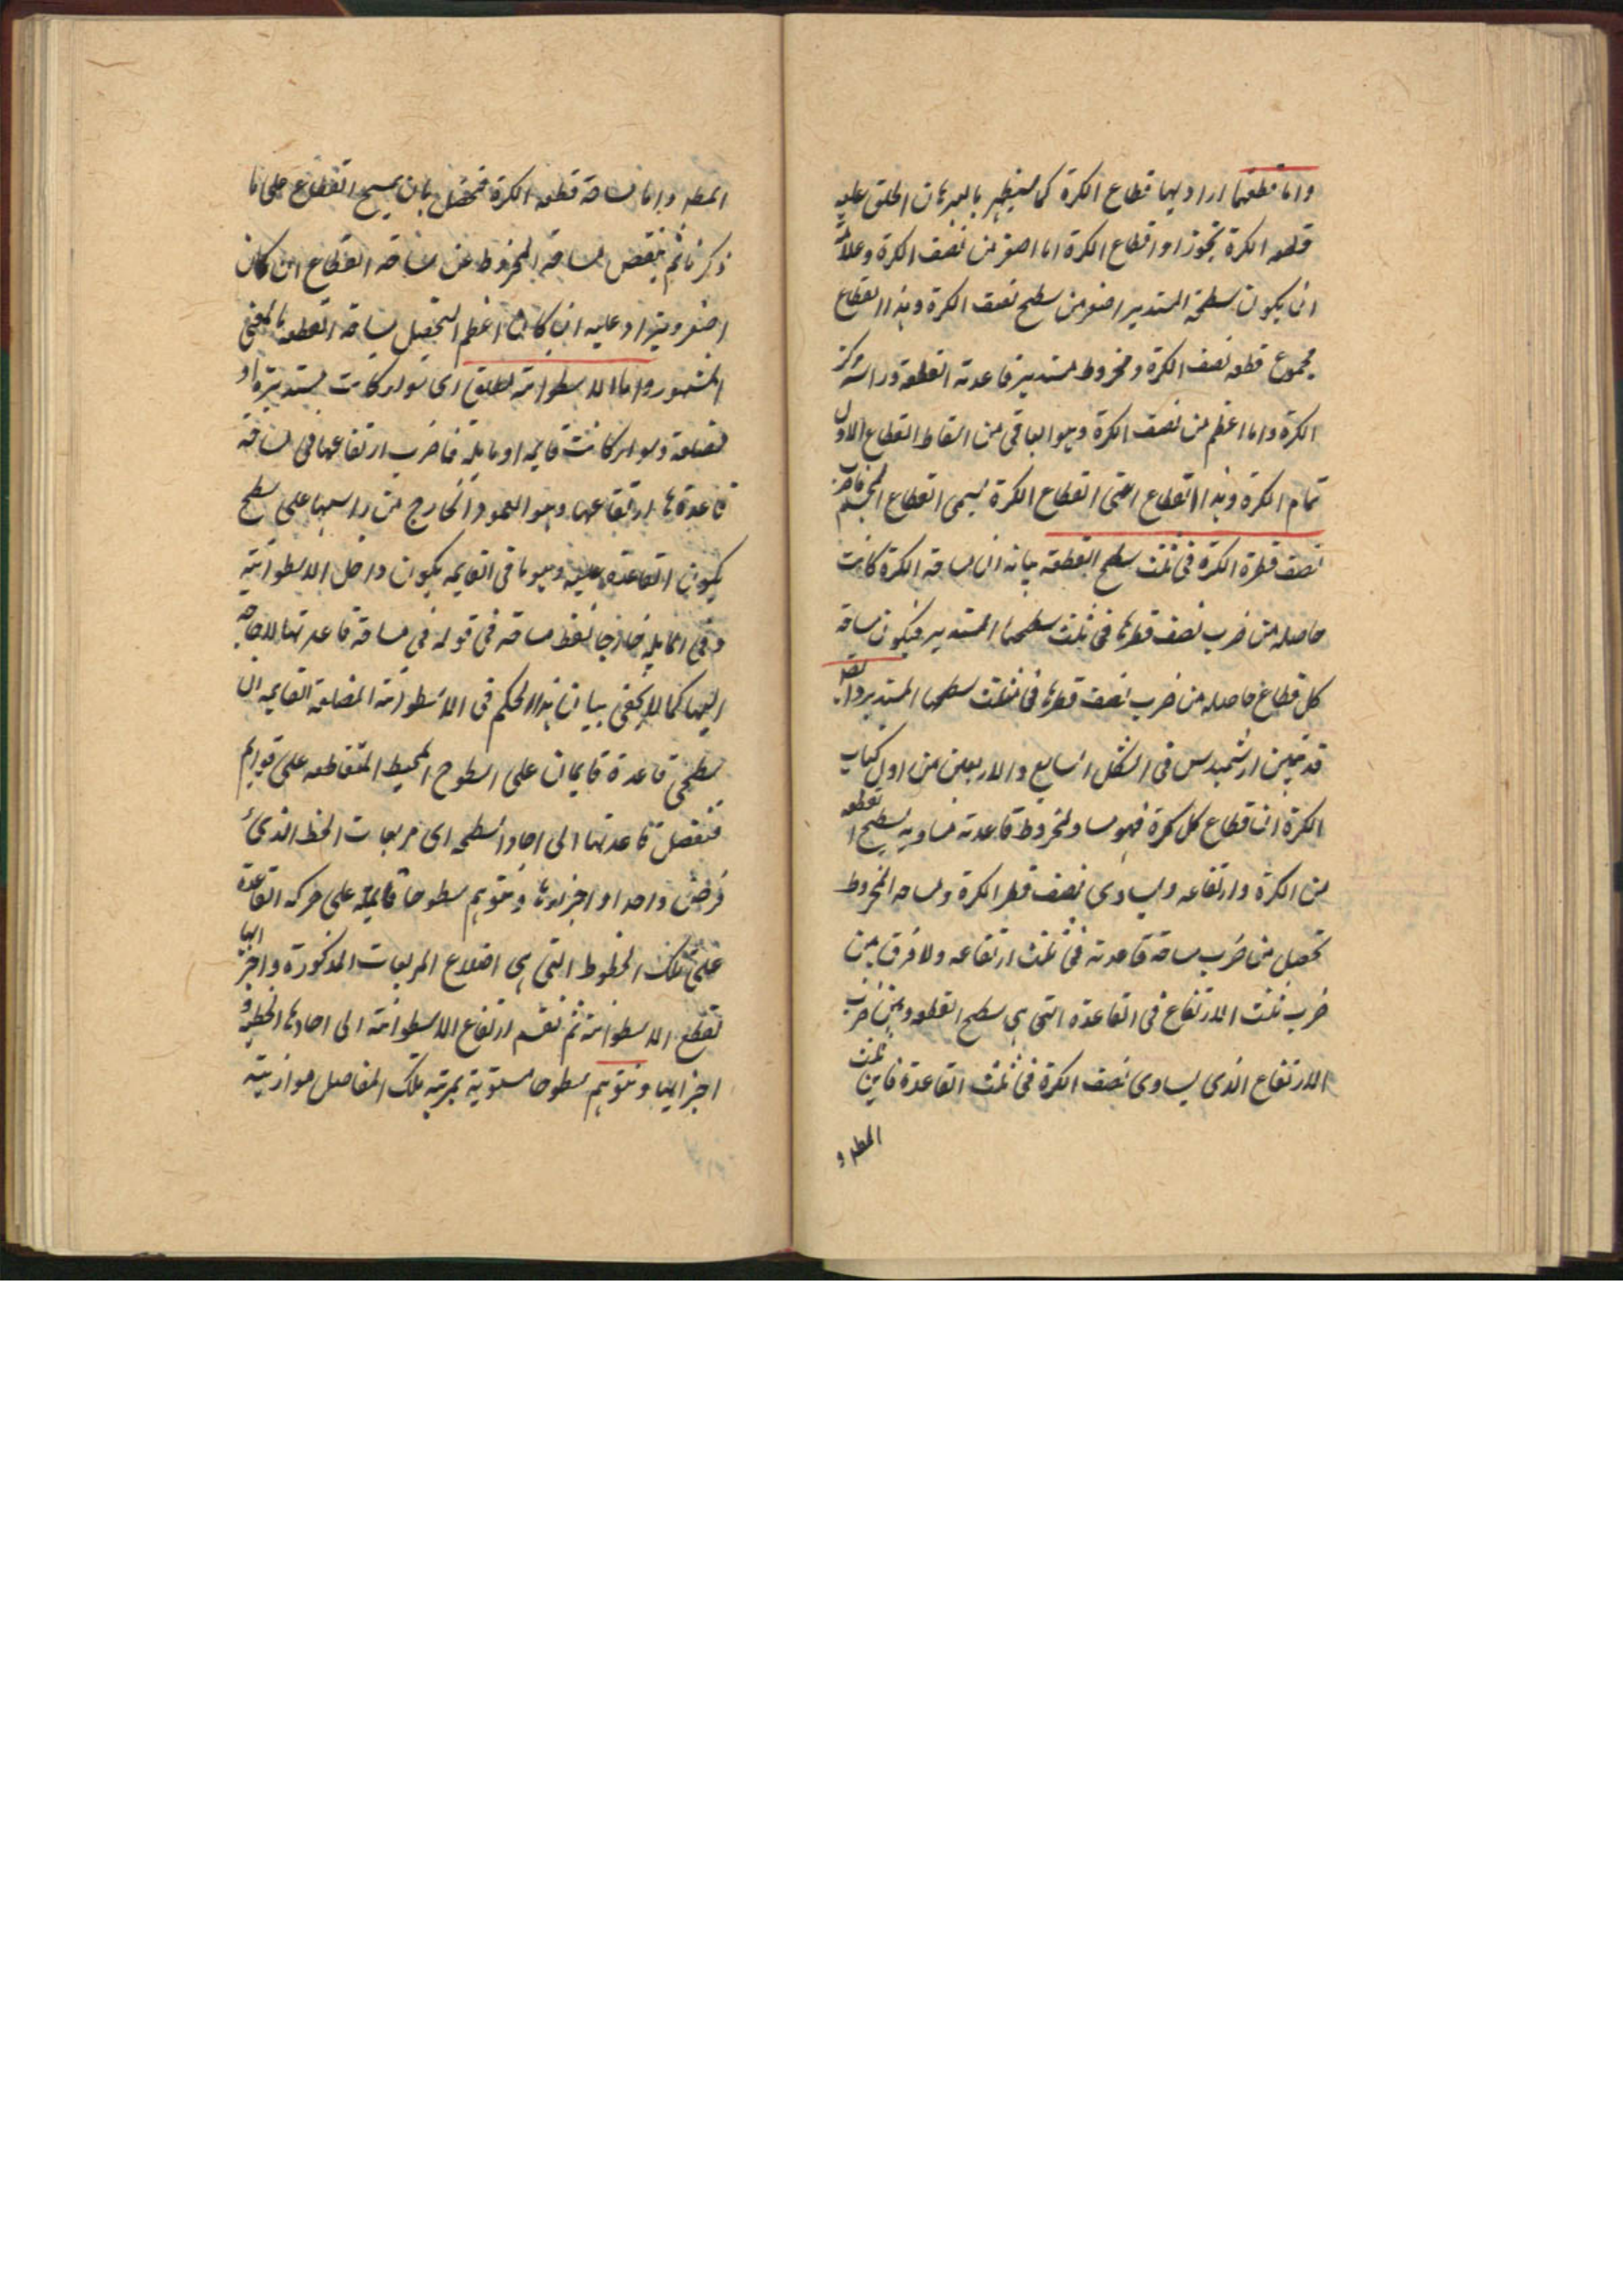 واما قطعتها اراد بها قطاع الكرة كما سيظهر بالبرهان اطلق عليه
قطعه الكرة تجوزا وقطاع الكرة اما اصغر من نصف الكرة وعلامته
ان يكون سطحه المستدير اصغر من سطح نصف الكرة وهذا القطاع
مجموع قطعه نصف الكرة ومخروط مستدير قاعدته القطعة وراسه مركز
الكرة واما اعظم من نصف الكرة وهو الباقى من اسقاط القطاع الاول
تمام الكرة وهذا القطاع اعنى القطاع الكرة يسمى القطاع المجسم فاضرب
نصف قطرة الكرة فى ثلث سطح القطعة بيانه ان مساحة الكرة كانت
حاصله من ضرب نصف قطرها فى ثلث سطحها المستدير فيكون مساحة
كل قطاع حاصله من ضرب نصف قطرها فى ثلث سطحها المستدير و
قد تبين ارشميدس فى الشكل السابع والاربعين من اول كتاب
الكرة ان قطاع كل كرة فهو مساو لمخروط قاعدته مساوية لسطح القطعه
من الكرة وارتفاعه يساوى نصف قطر الكرة ومساحه المخروط
تحصل من ضرب مساحة قاعدته فى ثلث ارتفاعه ولا فرق بين
ضرب ثلث الارتفاع فى القاعدة التى هى سطح القطعه وبين ضرب
الارتفاع الذى يساوى نصف الكرة فى ثلث القاعدة فاين ثلث
المطه و
المطه واما مساحة قطعه الكرة فتحصل بان يمسح القطاع على ما
ذكرنا ثم ينقص مساحة المخروط من مساحة القطاع ان كان
اصغر ويزاد عليه ان كان اعظم لتحصيل مساحة القطعه بالمعنى
المشهور واما الاسطوانة مطلق اى سواء كانت مستديرة او
مضلعة وسواء كانت قايمه او مايله فاضرب ارتفاعها فى مساحة
قاعدتها ارتفاعها وهو العمود الخارج من راسها على سطح
يكون القاعدة عليه وهو ما فى القايمه يكون داخل الاسطوانية
وفى المايله خارجا لفظ مساحة فى قوله فى مساحة قاعدتها لا حاجه
اليها كما لا يخفى بيان هذا الحكم فى الاسطوانة المضلعة القايمه ان
سطحى قاعدة قايمان على السطوح المحيط المتقاطعه على قوايم
فنفصل قاعدتها الى احاد السطحه اى مربعات الخط الذى
فرض واحدا واجزاءها ونتوهم سطوحا قايمة على حركه القاعدة
على تلك الخطوط التى هى اضلاع المربعات المذكورة واجزائها
تقطع الاسطوانة ثم نقسم ارتفاع الاسطوانة الى احادها الخطيه و
اجزايها ونتوهم سطوحا مستوية بمرتبه تلك المفاصل موازيته